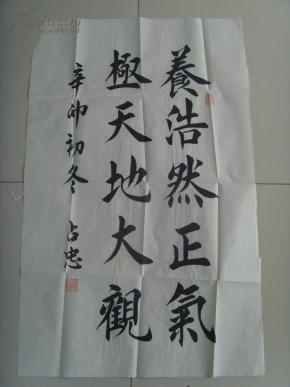 養浩然正氣
極天地大觀
辛卯初冬 占忠